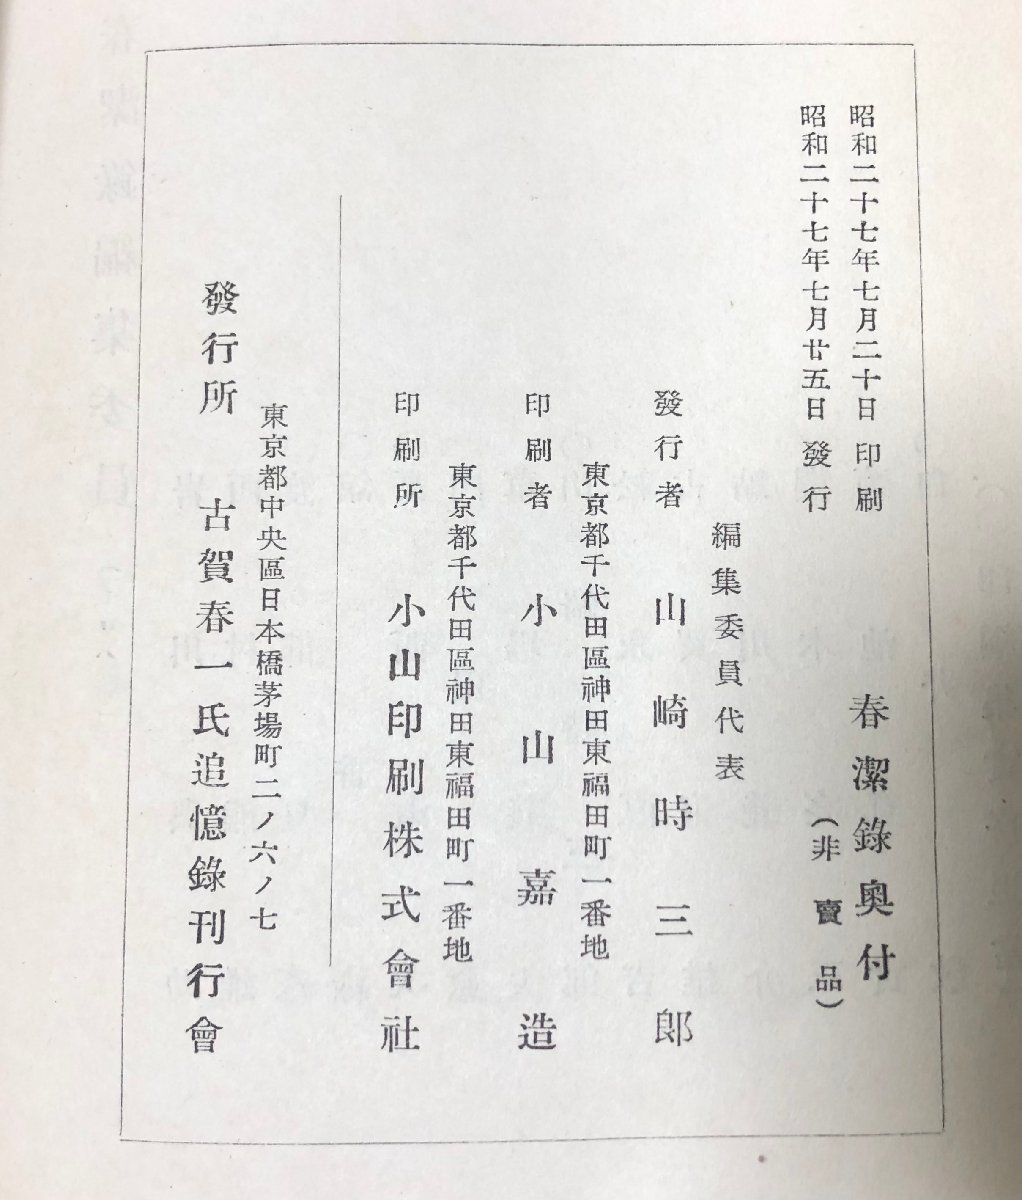 昭和二十七年七月二十日 印刷
昭和二十七年七月廿五日 發行
春潔錄奥付
(非賣品)
編集委員代表
發行者 山崎時三郎
東京都千代田區神田東福田町一番地
印刷者 小山嘉造
東京都千代田區神田東福田町一番地
印刷所 小山印刷株式會社
東京都中央區日本橋茅場町二ノ六ノ七
發行所 古賀春一氏追憶錄刊行會